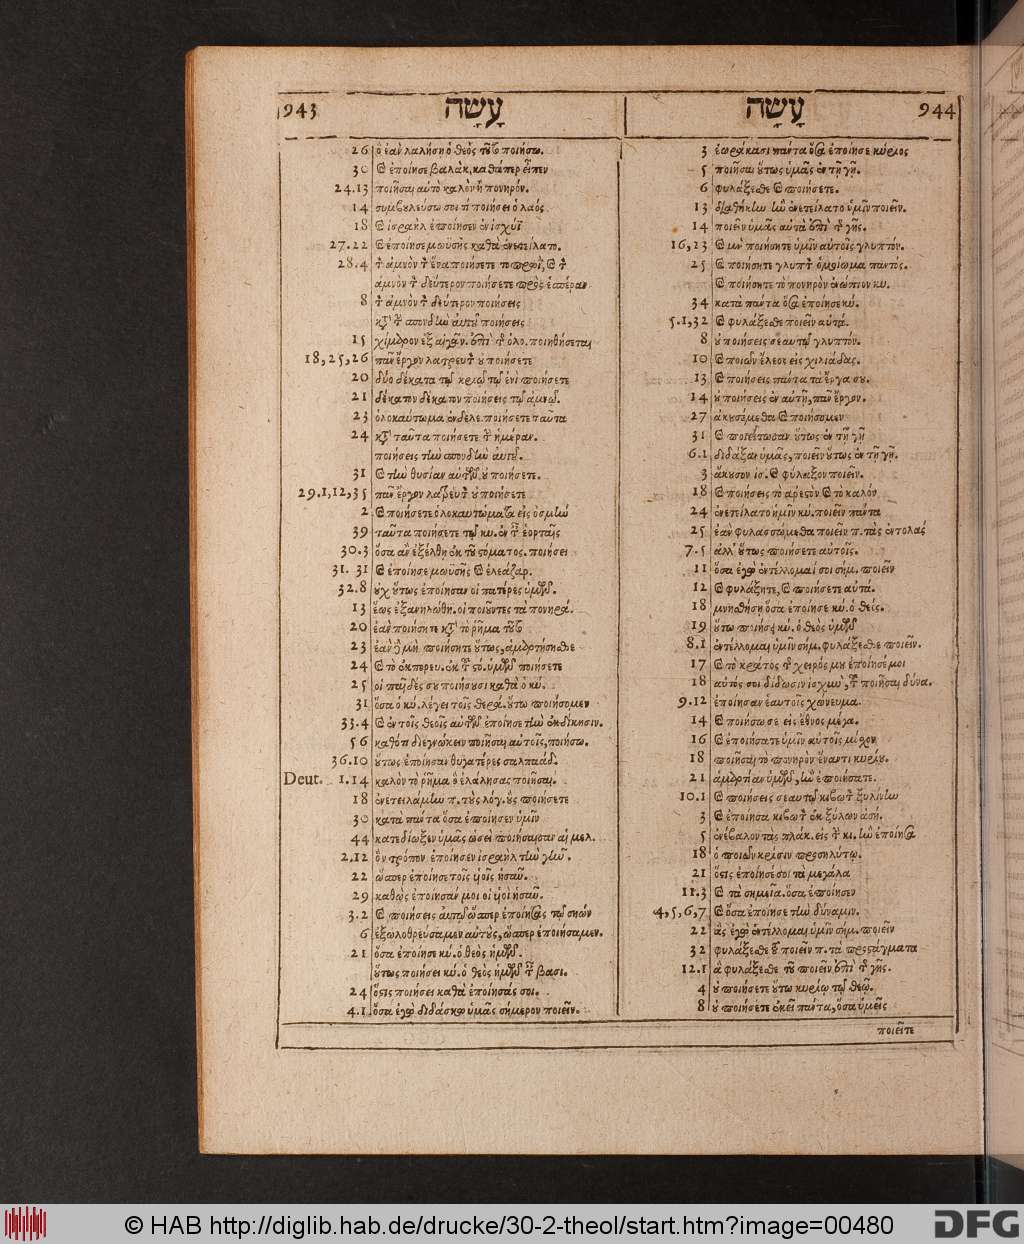 943 עָשָׂה
26 ὃ ἐὰν λαλήσῃ ὁ θεὸς τοῦτο ποιήσω.
30 καὶ ἐποίησε βαλὰκ, καθάπερ εἶπεν
24.13 ποιῆσαι αὐτὸ καλὸν ἢ πονηρόν.
14 συμβουλεύσω σοι τί ποιήσει ὁ λαός
18 καὶ ἰσραὴλ ἐποίησεν ἐν ἰσχύϊ
27.22 καὶ ἐποίησε μωϋσῆς καθὰ ἐνετείλατο.
28.4 τὸν ἀμνὸν τὸν ἕνα ποιήσετε τὸ πρωῒ, καὶ τὸν
ἀμνὸν τὸν δεύτερον ποιήσετε πρὸς ἑσπέραν
8 τὸν ἀμνὸν τὸν δεύτερον ποιήσεις
κατὰ τὴν σπονδὴν αὐτοῦ ποιήσεις
15 χίμαρον ἐξ αἰγῶν. ἐπὶ τῆς ὁλο. ποιηθήσεται
18,25,26 πᾶν ἔργον λατρευτὸν οὐ ποιήσετε
20 δύο δέκατα τῷ κριῷ τῷ ἑνὶ ποιήσετε
21 δέκατον δέκατον ποιήσεις τῷ ἀμνῷ.
23 ὁλοκαύτωμα ἐνδελε. ποιήσετε ταῦτα
24 κατὰ ταῦτα ποιήσετε τὴν ἡμέραν.
ποιήσεις τὴν σπονδὴν αὐτοῦ.
31 καὶ τὴν θυσίαν αὐτῶν οὐ ποιήσετε.
29.1,12,35 πᾶν ἔργον λατρευτὸν οὐ ποιήσετε
2 καὶ ποιήσετε ὁλοκαυτώματα εἰς ὀσμὴν
39 ταῦτα ποιήσετε τῷ κυ. ἐν ταῖς ἑορταῖς
30.3 ὅσα ἂν ἐξέλθῃ ἐκ τοῦ στόματος. ποιήσει
31. 31 καὶ ἐποίησε μωϋσῆς καὶ ἐλεάζαρ.
32.8 οὐχ οὕτως ἐποίησαν οἱ πατέρες ὑμῶν.
13 ἕως ἐξανηλώθη. οἱ ποιοῦντες τὰ πονηρά.
20 ἐὰν ποιήσητε κατὰ τὸ ῥῆμα τοῦτο
23 ἐὰν δὲ μὴ ποιήσητε οὕτως, ἁμαρτήσεσθε
24 καὶ τὸ ἐκπορευ. ἐκ τοῦ στό. ὑμῶν ποιήσετε
25 οἱ παῖδές σου ποιήσουσι καθὰ ὁ κύ.
31 ὅσα ὁ κυ. λέγει τοῖς θερά. οὕτω ποιήσομεν
33.4 καὶ ἐν τοῖς θεοῖς αὐτῶν ἐποίησε τὴν ἐκδίκησιν.
56 καθότι διεγνώκειν ποιῆσαι αὐτοῖς, ποιήσω.
36.10 οὕτως ἐποίησαν θυγατέρες σαλπαάδ.
Deut. 1.14 καλὸν τὸ ῥῆμα ὃ ἐλάλησας ποιῆσαι.
18 ἐνετειλάμην π. τοὺς λόγ. οὓς ποιήσετε
30 κατὰ πάντα ὅσα ἐποίησεν ὑμῖν
44 κατεδίωξεν ὑμᾶς ὡσεὶ ποιήσαισαν αἱ μελ.
2,12 ὃν τρόπον ἐποίησεν ἰσραὴλ τὴν γῆν.
22 ὥσπερ ἐποίησε τοῖς υἱοῖς ἡσαῦ.
29 καθὼς ἐποίησάν μοι οἱ υἱοὶ ἡσαῦ.
3.2 καὶ ποιήσεις αὐτῷ ὥσπερ ἐποίησας τῷ σηὼν
6 ἐξωλοθρεύσαμεν αὐτοὺς, ὥσπερ ἐποιήσαμεν.
21 ὅσα ἐποίησε κύ. ὁ θεὸς ἡμῶν.
οὕτως ποιήσει κύ. ὁ θεὸς ἡμῶν τὰς βασι.
24 ὅστις ποιήσει καθὰ ἐποίησάς σοι.
4.1 ὅσα ἐγὼ διδάσκω ὑμᾶς σήμερον ποιεῖν.
עָשָׂה 944
3 ἑωράκασι πάντα ὅσα ἐποίησε κύριος
5 ποιῆσαι οὕτως ὑμᾶς ἐν τῇ γῇ.
6 φυλάξεσθε καὶ ποιήσετε.
13 διαθήκην ἣν ἐνετείλατο ὑμῖν ποιεῖν.
14 ποιεῖν ὑμᾶς αὐτὰ ἐπὶ τῆς γῆς.
16,23 καὶ μὴ ποιήσητε ὑμῖν αὐτοῖς γλυπτόν.
25 καὶ ποιήσητε γλυπτὸν ὁμοίωμα παντός.
καὶ ποιήσητε τὸ πονηρὸν ἐνώπιον κυ.
34 κατὰ πάντα ὅσα ἐποίησε κύ.
5.1,32 καὶ φυλάξεσθε ποιεῖν αὐτά.
8 οὐ ποιήσεις σεαυτῷ γλυπτόν.
10 καὶ ποιῶν ἔλεος εἰς χιλιάδας.
13 καὶ ποιήσεις πάντα τὰ ἔργα σου.
14 οὐ ποιήσεις ἐν αὐτῇ, πᾶν ἔργον.
27 ἀκουσόμεθα καὶ ποιήσομεν
31 καὶ ποιείτωσαν οὕτως ἐν τῇ γῇ
6.1 διδάξαι ὑμᾶς, ποιεῖν οὕτως ἐν τῇ γῇ.
3 ἄκουσον ἰσ. καὶ φύλαξον ποιεῖν.
18 καὶ ποιήσεις τὸ ἀρεστὸν καὶ τὸ καλόν
24 ἐνετείλατο ἡμῖν κυ. ποιεῖν πάντα
25 ἐὰν φυλασσώμεθα ποιεῖν π. τὰς ἐντολάς
7.5 ἀλλ' οὕτως ποιήσετε αὐτοῖς.
11 ὅσα ἐγὼ ἐντέλλομαί σοι σήμ. ποιεῖν
12 καὶ φυλάξητε, καὶ ποιήσετε αὐτά.
18 μνησθήσῃ ὅσα ἐποίησε κύ. ὁ θεός.
19 οὕτω ποιήσει κύ. ὁ θεὸς ὑμῶν
8.1 ἐντέλλομαι ὑμῖν σήμ. φυλάξεσθε ποιεῖν.
17 καὶ τὸ κράτος τῆς χειρός μου ἐποίησέ μοι
18 αὐτός σοι δίδωσιν ἰσχὺν, τοῦ ποιῆσαι δύνα.
9.12 ἐποίησαν ἑαυτοῖς χώνευμα.
14 καὶ ποιήσω σε εἰς ἔθνος μέγα.
16 καὶ ἐποιήσατε ὑμῖν αὐτοῖς μόσχον
18 ποιῆσαι τὸ πονηρὸν ἔναντι κυρίου.
21 ἁμαρτίαν ὑμῶν, ἣν ἐποιήσατε.
10.1 καὶ ποιήσεις σεαυτῷ κιβωτὸν ξυλίνην
3 καὶ ἐποίησα κιβωτὸν ἐκ ξύλων ἀσή.
5 ἐνέβαλον τὰς πλάκ. εἰς τὴν κι. ἣν ἐποίησα
18 ὁ ποιῶν κρίσιν προσηλύτῳ.
21 ὅστις ἐποίησέ σοι τὰ μεγάλα
11.3 καὶ τὰ σημεῖα. ὅσα ἐποίησεν
4,5,6,7 καὶ ὅσα ἐποίησε τὴν δύναμιν.
22 ἃς ἐγὼ ἐντέλλομαι ὑμῖν σήμ. ποιεῖν
32 φυλάξεσθε τοῦ ποιεῖν π. τὰ προστάγματα
12.1 ἃ φυλάξεσθε τοῦ ποιεῖν ἐπὶ τῆς γῆς.
4 οὐ ποιήσετε οὕτω κυρίῳ τῷ θεῷ.
8 οὐ ποιήσετε ἐκεῖ πάντα, ὅσα ὑμεῖς
ποιεῖτε
© HAB http://diglib.hab.de/drucke/30-2-theol/start.htm?image=00480
DFG